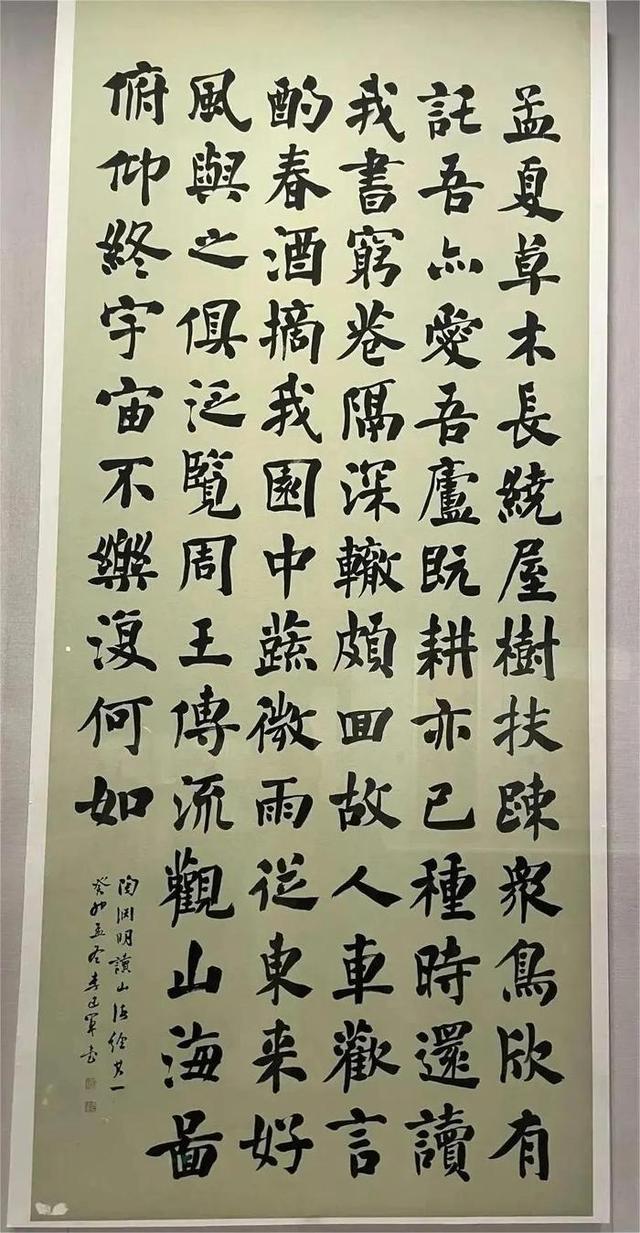 孟夏草木長繞屋樹扶踈衆鳥欣有
託吾亦愛吾廬既耕亦已種時還讀
我書窮巷隔深轍頗回故人車歡言
酌春酒摘我園中蔬微雨從東来好
風與之俱泛覽周王傳流觀山海啚
俯仰終宇宙不樂復何如
陶渊明讀山海經其一
癸卯孟冬李建軍書